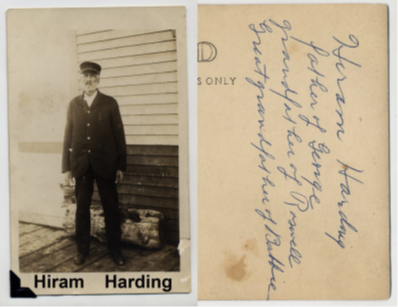 Hiram Harding
D
S ONLY
Hiram Harding
father of George
grandfather of Roswell
Great grandfather of Ruthie